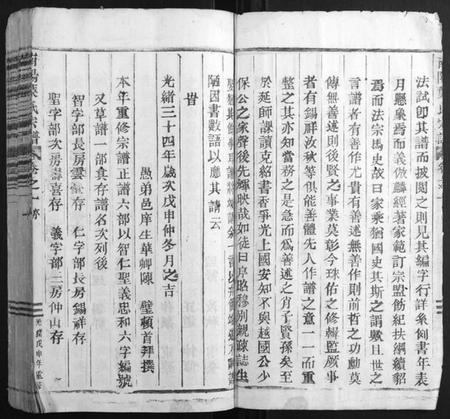 法試卽其譜而披閱之則見其編字行詳系倒書年表
月懸象焉而義倣麟經著家範訂宗盟飭紀扶綱續貂
焉而法宗馬史故曰家乘猶國史其斯之謂歟且世之
言譜者有善作尤貴有善述無善作則前哲之功勳莫
傳無善述則後賢之事業莫彰今珠佑之修輯監厥事
者有錫祥汝秋等俱能善體先人作譜之意一一而重
整之其亦知當務之是急而爲善述之肖子賢孫矣至
於延師課讀克紹書香爭光上國安知不與越國公少
保公之家聲後先輝映哉如徒曰序昭穆別親疎誌生
陋因書數語以應其請云
旹
光緒三十四年歲次戊申仲冬月之吉
愚弟邑庠生華卿陳 璧頓首拜撰
本年重修宗譜正譜六部以智仁聖義忠和六字編號
又草譜一部眞存譜名次列後
智字部長房雲壽存 仁字部長房錫祥存
聖字部次房壽喜存 義字部二房仲山存
南陽葉氏宗譜 卷之一
光緒戊申年重修